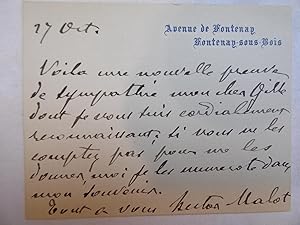 Avenue de Fontenay
Fontenay-sous-Bois
27 Oct.
Voilà une nouvelle preuve
de sympathie mon cher Gille
dont je vous suis cordialement
reconnaissant; si vous ne les
comptez pas pour me les
donner, moi je les numerote dans
mon souvenir.
Tout a vous Hector Malot